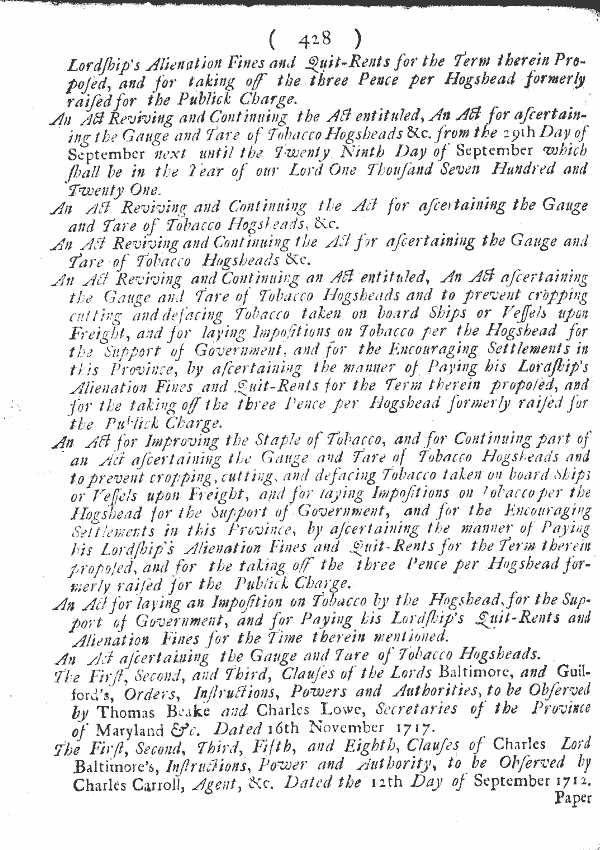 ( 428 )
Lordſhip's Alienation Fines and Quit-Rents for the Term therein Pro-
poſed, and for taking off the three Pence per Hogshead formerly
raiſed for the Publick Charge.
An Act Reviving and Continuing the Act entituled, An Act for aſcertain-
ing the Gauge and Tare of Tobacco Hogsheads &c. from the 29th Day of
September next until the Twenty Ninth Day of September which
ſhall be in the Year of our Lord One Thouſand Seven Hundred and
Twenty One.
An Act Reviving and Continuing the Act for aſcertaining the Gauge
and Tare of Tobacco Hogsheads, &c.
An Act Reviving and Continuing the Act for aſcertaining the Gauge and
Tare of Tobacco Hogsheads &c.
An Act Reviving and Continuing an Act entituled, An Act aſcertaining
the Gauge and Tare of Tobacco Hogsheads and to prevent cropping
cutting and defacing Tobacco taken on board Ships or Veſſels upon
Freight, and for laying Impoſitions on Tobacco per the Hogshead for
the Support of Government, and for the Encouraging Settlements in
this Province, by aſcertaining the manner of Paying his Lordſhip's
Alienation Fines and Quit-Rents for the Term therein propoſed, and
for the taking off the three Pence per Hogshead formerly raiſed for
the Publick Charge.
An Act for Improving the Staple of Tobacco, and for Continuing part of
an Act aſcertaining the Gauge and Tare of Tobacco Hogsheads and
to prevent cropping, cutting, and defacing Tobacco taken on board Ships
or Veſſels upon Freight, and for laying Impoſitions on Tobacco per the
Hogshead for the Support of Government, and for the Encouraging
Settlements in this Province, by aſcertaining the manner of Paying
his Lordſhip's Alienation Fines and Quit-Rents for the Term therein
propoſed, and for the taking off the three Pence per Hogshead for-
merly raiſed for the Publick Charge.
An Act for laying an Impoſition on Tobacco by the Hogshead, for the Sup-
port of Government, and for Paying his Lordſhip's Quit-Rents and
Alienation Fines for the Time therein mentioned.
An Act aſcertaining the Gauge and Tare of Tobacco Hogsheads.
The Firſt, Second, and Third, Clauſes of the Lords Baltimore, and Guil-
ford's, Orders, Inſtructions, Powers and Authorities, to be Obſerved
by Thomas Beake and Charles Lowe, Secretaries of the Province
of Maryland &c. Dated 16th November 1717.
The Firſt, Second, Third, Fifth, and Eighth, Clauſes of Charles Lord
Baltimore's, Inſtructions, Power and Authority, to be Obſerved by
Charles Carroll, Agent, &c. Dated the 12th Day of September 1712.
Paper